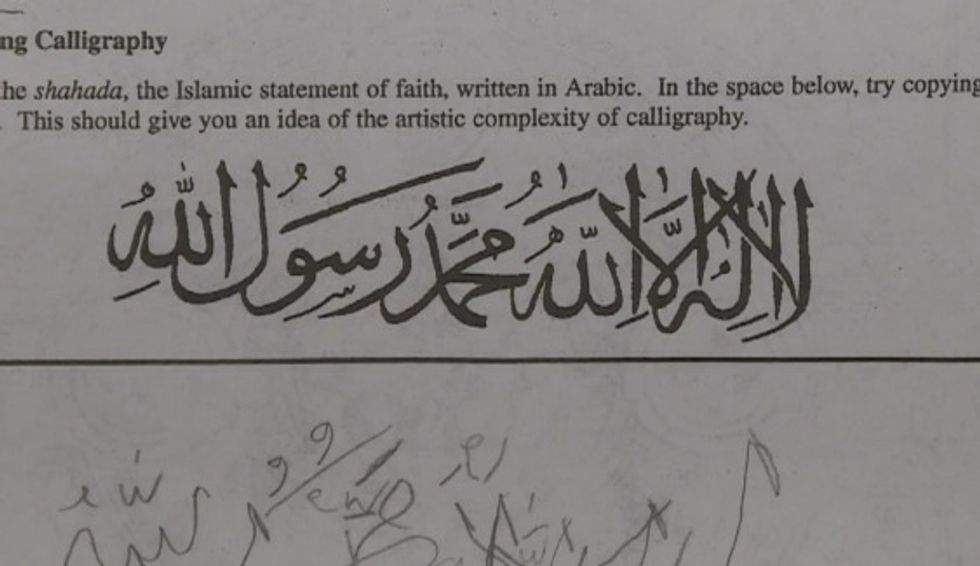 ng Calligraphy
he shahada, the Islamic statement of faith, written in Arabic. In the space below, try copying
. This should give you an idea of the artistic complexity of calligraphy.
لا إله إلا الله محمد رسول الله